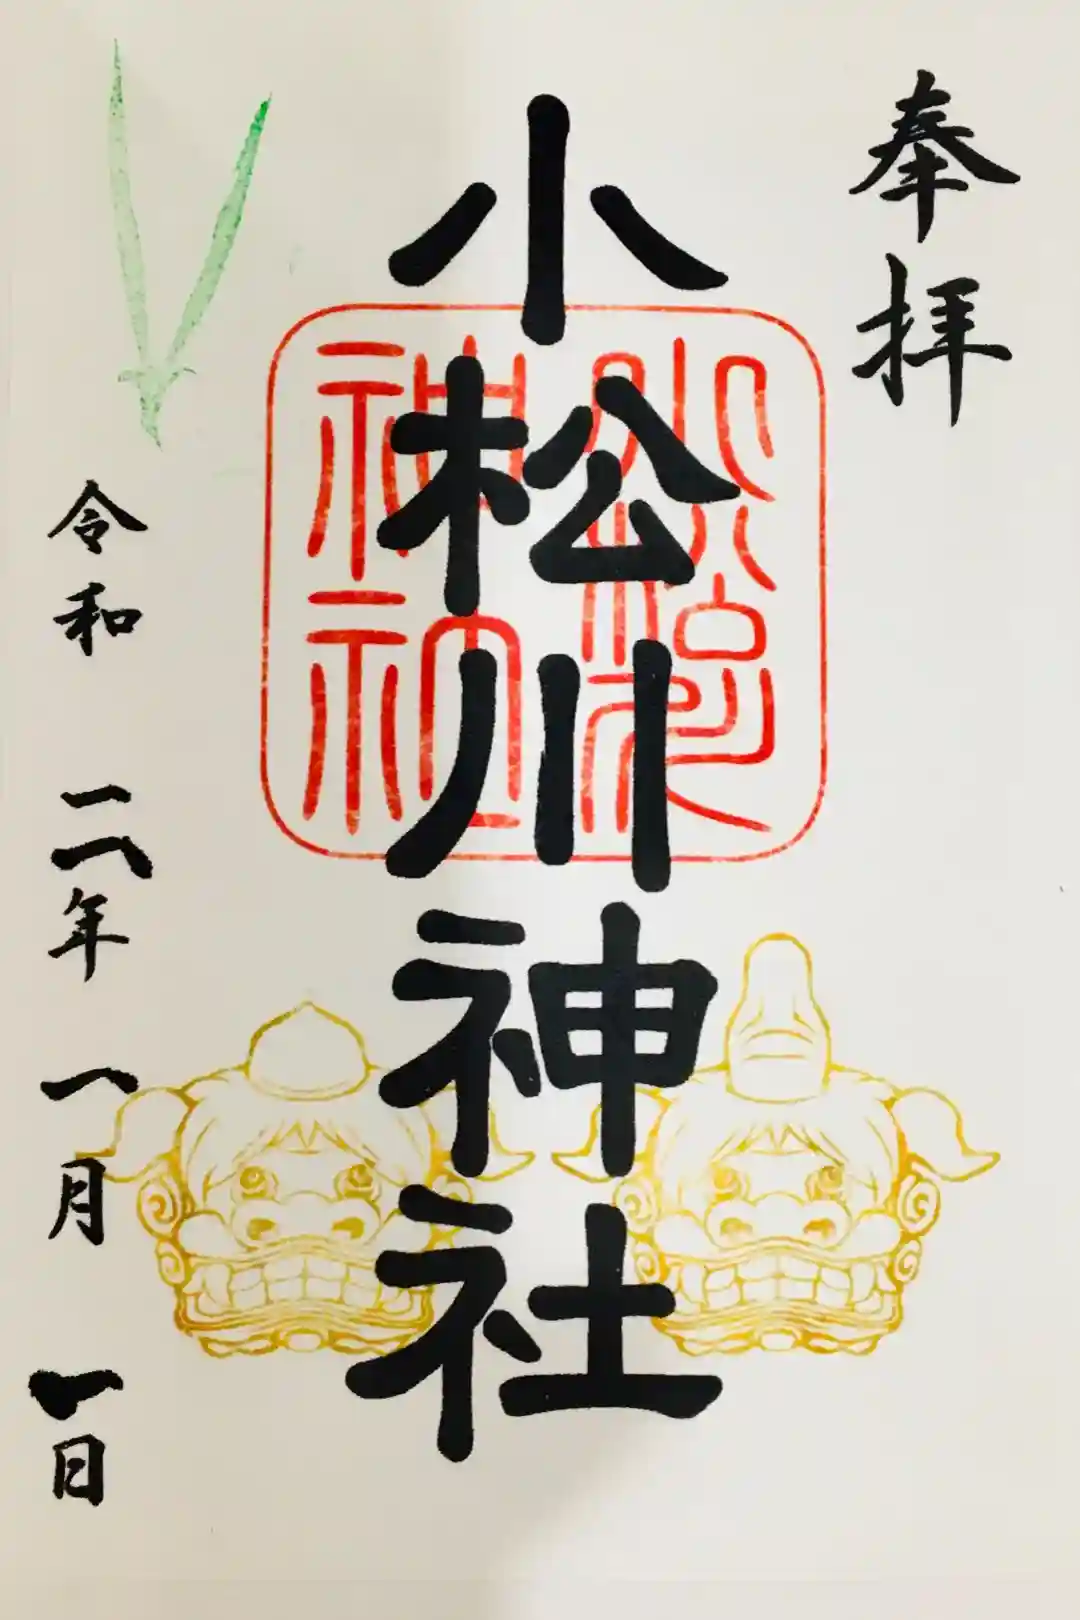 奉拝
小松川神社
神社
令和 年 一月 一日